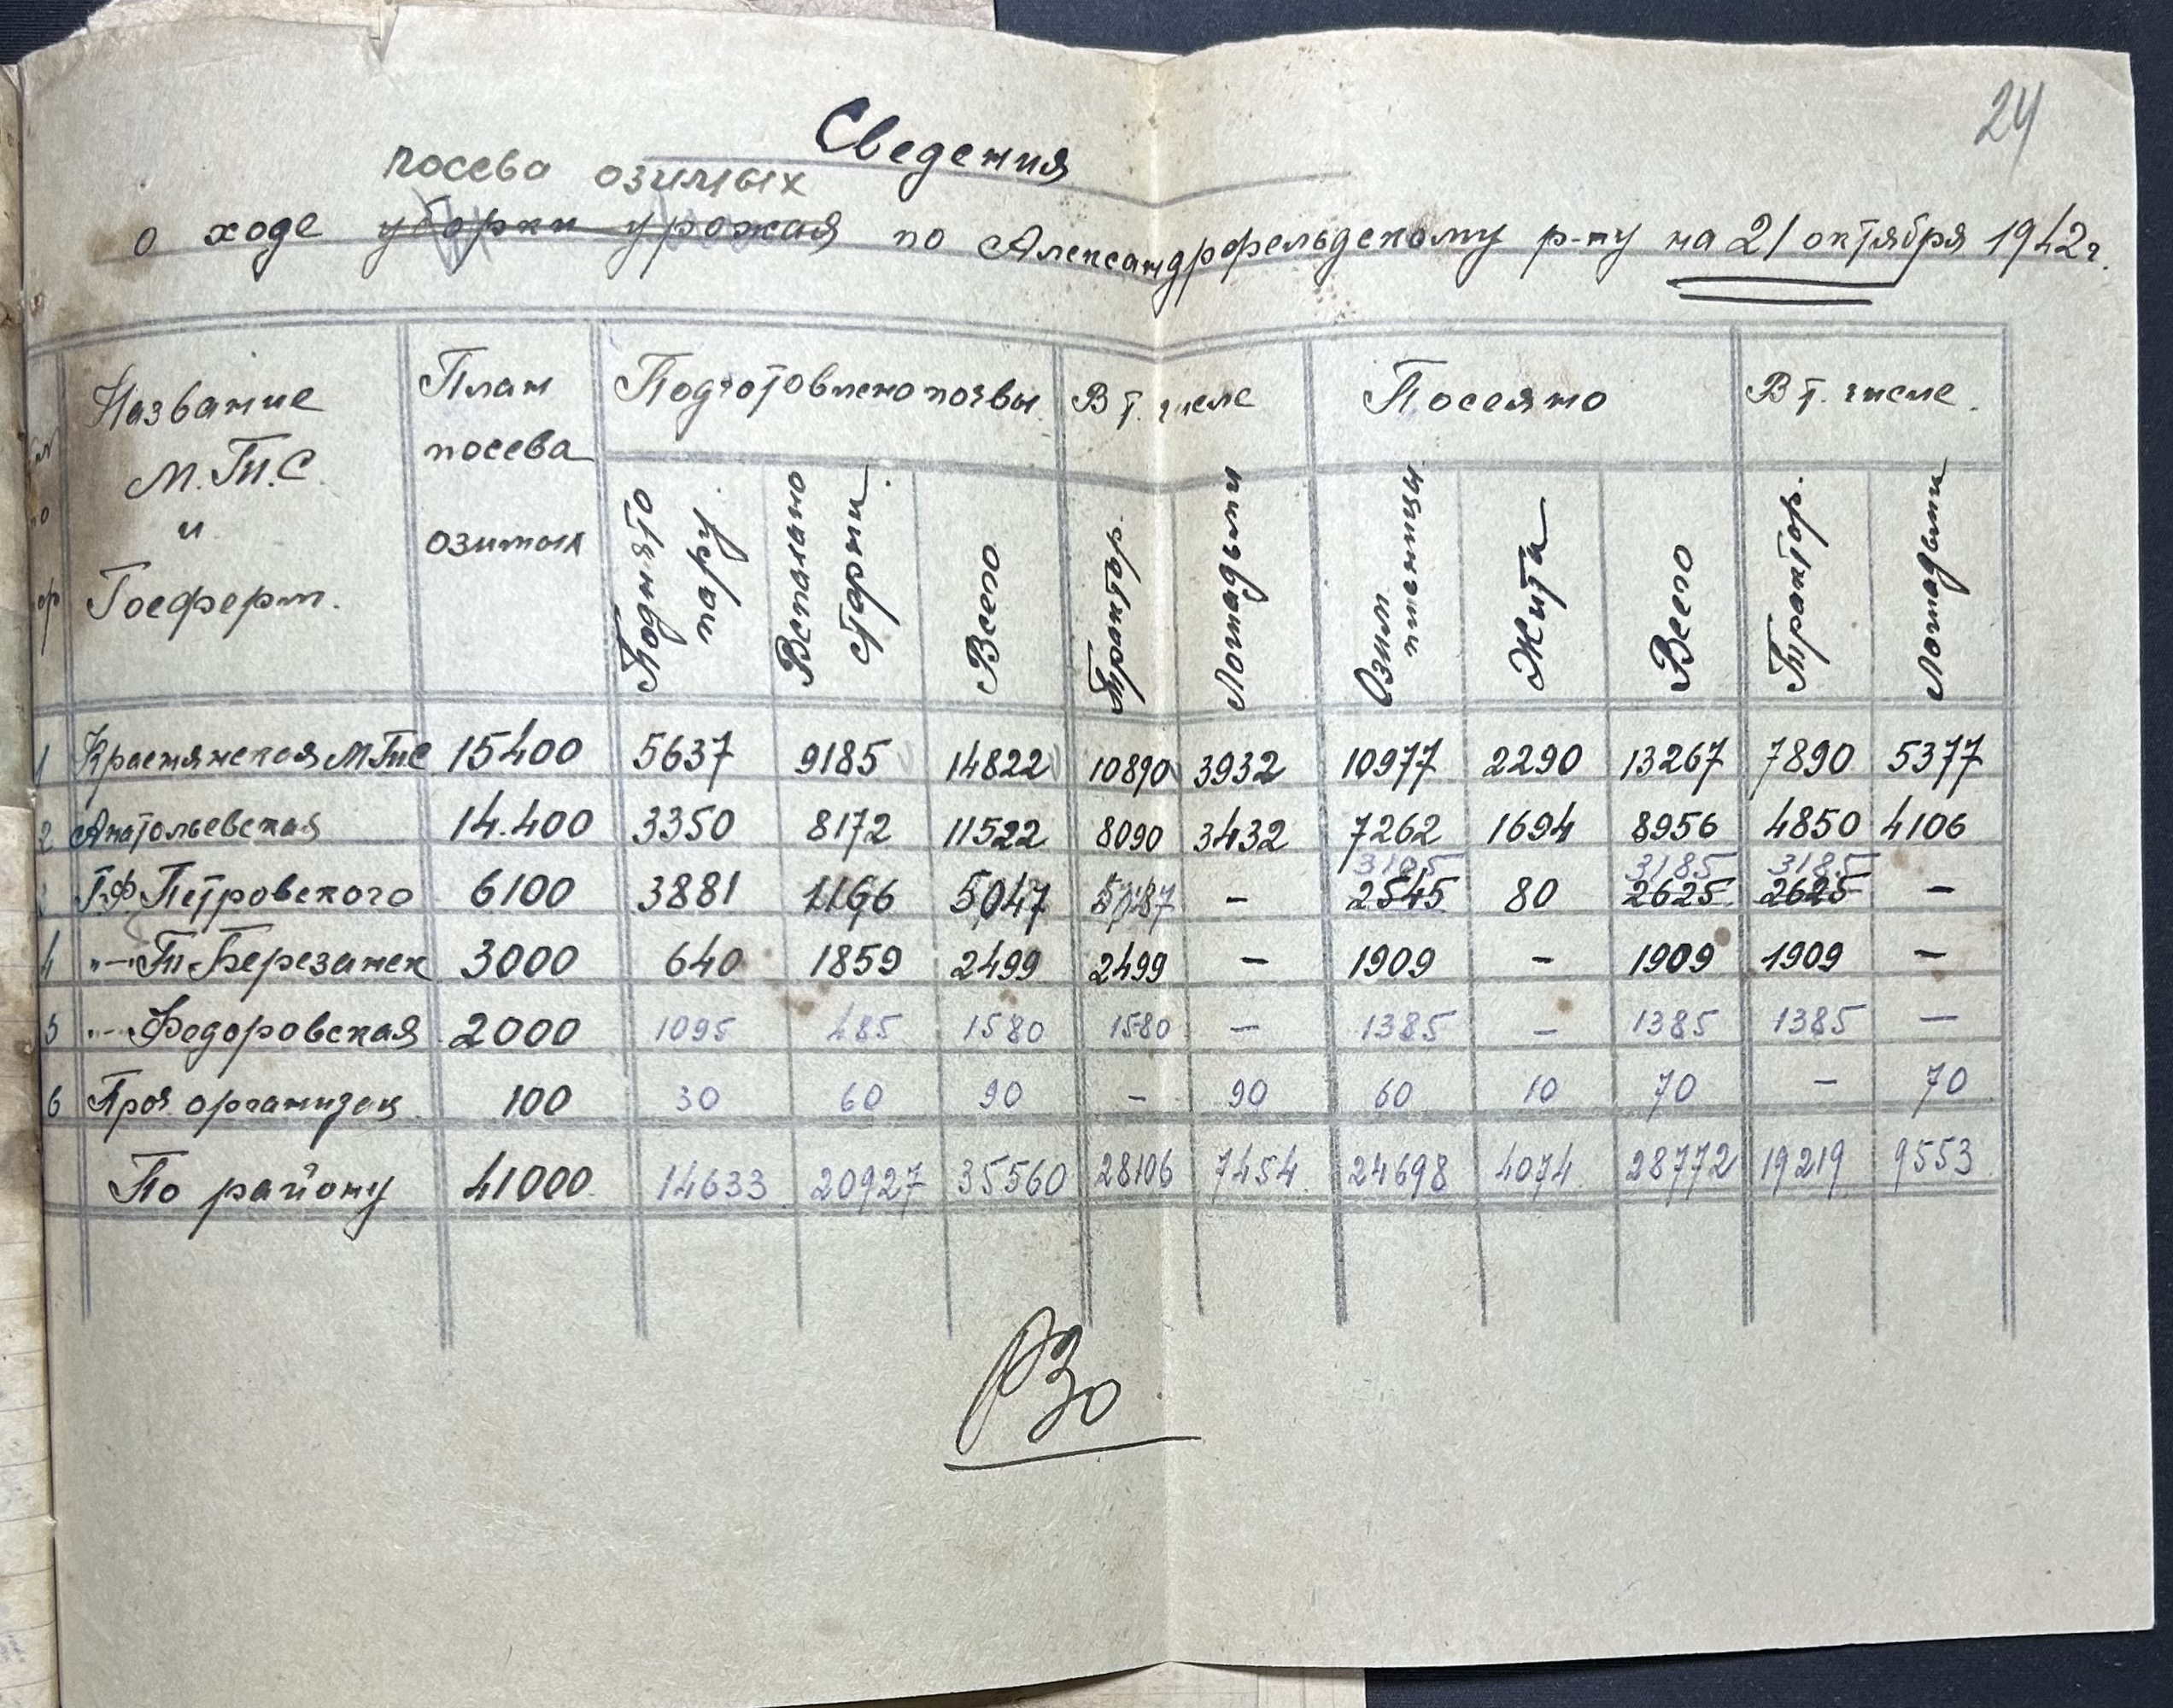 24
Сведения
посева озимых
о ходе уборки урожая по Александрфельдскому р-ну на 21 октября 1942 г.
№ по пр | Название М.Т.С. и Госферм. | План посева озимых | Подготовлено почвы | В т. числе | Посеяно | В т. числе.
Поднято пару | Вспахано стерни. | Всего | Трактор. | Лошадьми | Озим пшеницы | Жита | Всего | Трактор. | Лошадьми
1 | Краснянская МТС | 15400 | 5637 | 9185 | 14822 | 10890 | 3932 | 10977 | 2290 | 13267 | 7890 | 5377
2 | Анатольевская | 14.400 | 3350 | 8172 | 11522 | 8090 | 3432 | 7262 | 1694 | 8956 | 4850 | 4106
3105 | 3185 | 3185
3 | Г.Ф. Петровского | 6100 | 3881 | 1166 | 5047 | 5047 | – | 2545 | 80 | 2625 | 2625 | –
4 | -"- Т-Березанск | 3000 | 640 | 1859 | 2499 | 2499 | – | 1909 | – | 1909 | 1909 | –
5 | -"- Федоровская | 2000 | 1095 | 485 | 1580 | 1580 | – | 1385 | – | 1385 | 1385 | –
6 | Проч. организац | 100 | 30 | 60 | 90 | – | 90 | 60 | 10 | 70 | – | 70
По району | 41000 | 14633 | 20927 | 35560 | 28106 | 7454 | 24698 | 4074 | 28772 | 19219 | 9553